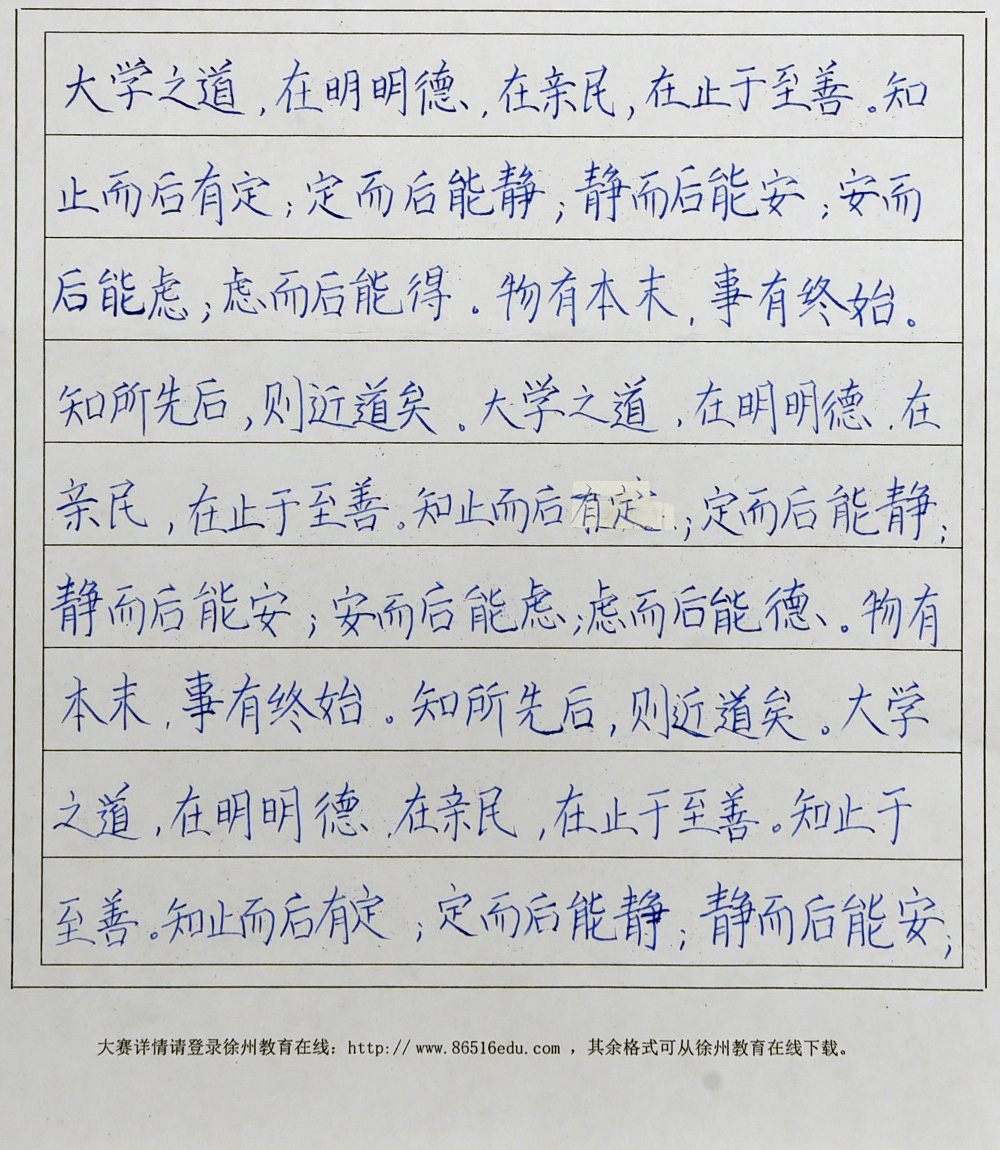 大学之道,在明明德,在亲民,在止于至善。知
止而后有定;定而后能静;静而后能安;安而
后能虑;虑而后能得。物有本末,事有终始。
知所先后,则近道矣。大学之道,在明明德,在
亲民,在止于至善。知止而后有定;定而后能静;
静而后能安;安而后能虑;虑而后能德。物有
本末,事有终始。知所先后,则近道矣。大学
之道,在明明德,在亲民,在止于至善。知止于
至善。知止而后有定;定而后能静;静而后能安;
大赛详情请登录徐州教育在线:http://www.86516edu.com,其余格式可从徐州教育在线下载。